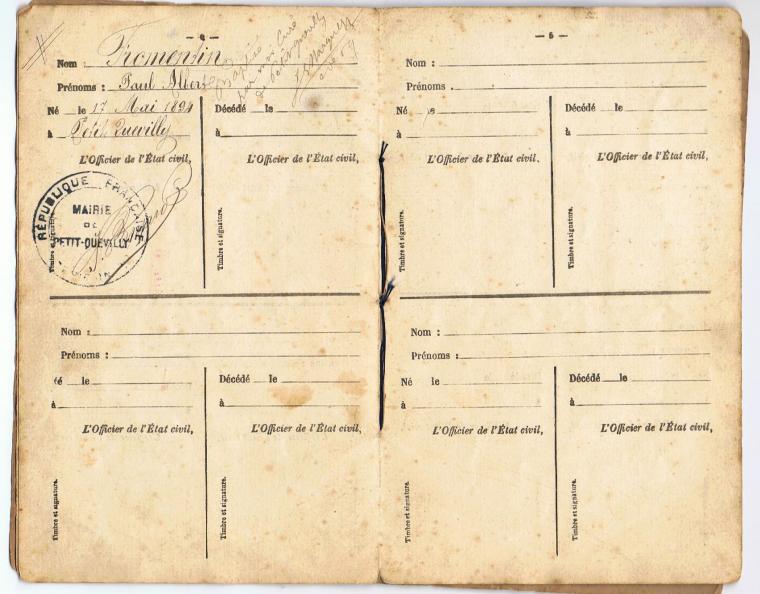 Nom : Fromentin
Prénoms : Paul Albert
Né le 17 Mai 1894
à Petit Quevilly
L'Officier de l'État civil,
Timbre et signature.
RÉPUBLIQUE FRANÇAISE
MAIRIE
DE
PETIT-QUEVILLY
Baptisé
par moi Curé
de Petit Quevilly
Décédé le
à
L'Officier de l'État civil,
Timbre et signature.
Nom :
Prénoms :
é le
à
L'Officier de l'État civil,
Timbre et signature.
Décédé le
à
L'Officier de l'État civil,
Timbre et signature.
— 5 —
Nom :
Prénoms :
Né le
à
L'Officier de l'État civil.
Timbre et signature.
Décédé le
à
L'Officier de l'État civil,
Timbre et signature.
Nom :
Prénoms :
Né le
à
L'Officier de l'État civil,
Timbre et signature.
Décédé le
à
L'Officier de l'État civil,
Timbre et signature.